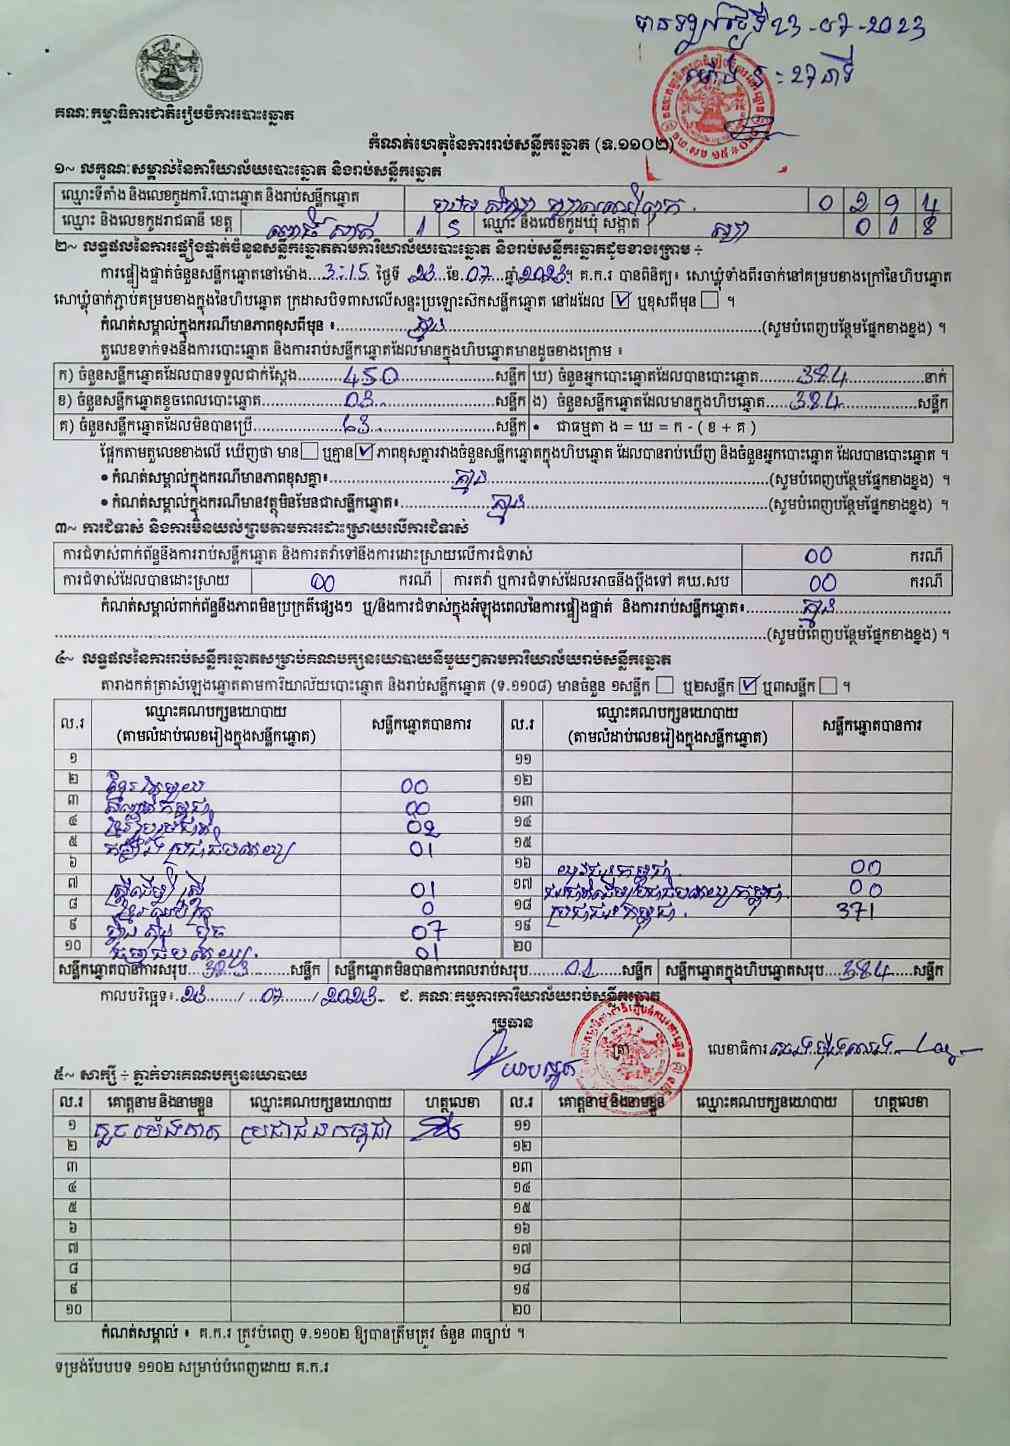 បានទទួលថ្ងៃទី 23-07-2023
ម៉ោង : 27 នាទី
គណៈកម្មាធិការជាតិរៀបចំការបោះឆ្នោត
កំណត់ហេតុនៃការរាប់សន្លឹកឆ្នោត (ទ.១១០២)
១~ លក្ខណៈសម្គាល់នៃការិយាល័យបោះឆ្នោត និងរាប់សន្លឹកឆ្នោត
ឈ្មោះទីតាំង និងលេខកូដការិ.បោះឆ្នោត និងរាប់សន្លឹកឆ្នោត 0294
ឈ្មោះ និងលេខកូដរាជធានី ខេត្ត ពោធិ៍សាត់ 15 ឈ្មោះ និងលេខកូដឃុំ សង្កាត់ 018
២~ លទ្ធផលនៃការផ្ទៀងផ្ទាត់ចំនួនសន្លឹកឆ្នោតតាមការិយាល័យបោះឆ្នោត និងរាប់សន្លឹកឆ្នោតដូចខាងក្រោម ÷
ការផ្ទៀងផ្ទាត់ចំនួនសន្លឹកឆ្នោតនៅម៉ោង...3:15 ថ្ងៃទី 23 ខែ 07 ឆ្នាំ 2023។ គ.ក.រ បានពិនិត្យ៖ សោឃ្លុំទាំងពីរចាក់នៅគម្របខាងក្រៅនៃហិបឆ្នោត
សោឃ្លុំចាក់ភ្ជាប់គម្របខាងក្នុងនៃហិបឆ្នោត ក្រដាសបិទពាសលើសន្ទះប្រឡោះសិកសន្លឹកឆ្នោត នៅដដែល ☑ ឬខុសពីមុន ☐ ។
កំណត់សម្គាល់ក្នុងករណីមានភាពខុសពីមុន ៖ គ្មាន (សូមបំពេញបន្ថែមផ្នែកខាងខ្នង) ។
តួលេខទាក់ទងនឹងការបោះឆ្នោត និងការរាប់សន្លឹកឆ្នោតដែលមានក្នុងហិបឆ្នោតមានដូចខាងក្រោម ៖
ក) ចំនួនសន្លឹកឆ្នោតដែលបានទទួលជាក់ស្តែង 450 សន្លឹក ឃ) ចំនួនអ្នកបោះឆ្នោតដែលបានបោះឆ្នោត 384 នាក់
ខ) ចំនួនសន្លឹកឆ្នោតខូចពេលបោះឆ្នោត 03 សន្លឹក ង) ចំនួនសន្លឹកឆ្នោតដែលមានក្នុងហិបឆ្នោត 384 សន្លឹក
គ) ចំនួនសន្លឹកឆ្នោតដែលមិនបានប្រើ 63 សន្លឹក • ជាធម្មតា ង = ឃ = ក - ( ខ + គ )
ផ្អែកតាមតួលេខខាងលើ ឃើញថា មាន ☐ ឬគ្មាន ☑ ភាពខុសគ្នារវាងចំនួនសន្លឹកឆ្នោតក្នុងហិបឆ្នោត ដែលបានរាប់ឃើញ និងចំនួនអ្នកបោះឆ្នោត ដែលបានបោះឆ្នោត ។
• កំណត់សម្គាល់ក្នុងករណីមានភាពខុសគ្នា៖ គ្មាន (សូមបំពេញបន្ថែមផ្នែកខាងខ្នង) ។
• កំណត់សម្គាល់ក្នុងករណីមានវត្ថុមិនមែនជាសន្លឹកឆ្នោត៖ គ្មាន (សូមបំពេញបន្ថែមផ្នែកខាងខ្នង) ។
៣~ ការជំទាស់ និងការមិនយល់ព្រមតាមការដោះស្រាយលើការជំទាស់
ការជំទាស់ពាក់ព័ន្ធនឹងការរាប់សន្លឹកឆ្នោត និងការតវ៉ាទៅនឹងការដោះស្រាយលើការជំទាស់ 00 ករណី
ការជំទាស់ដែលបានដោះស្រាយ 00 ករណី ការតវ៉ា ឬការជំទាស់ដែលអាចនឹងប្តឹងទៅ គឃ.សប 00 ករណី
កំណត់សម្គាល់ពាក់ព័ន្ធនឹងភាពមិនប្រក្រតីផ្សេងៗ ឬ/និងការជំទាស់ក្នុងអំឡុងពេលនៃការផ្ទៀងផ្ទាត់ និងការរាប់សន្លឹកឆ្នោត៖ គ្មាន
(សូមបំពេញបន្ថែមផ្នែកខាងខ្នង) ។
៤~ លទ្ធផលនៃការរាប់សន្លឹកឆ្នោតសម្រាប់គណបក្សនយោបាយនីមួយៗតាមការិយាល័យរាប់សន្លឹកឆ្នោត
តារាងកត់ត្រាសំឡេងឆ្នោតតាមការិយាល័យបោះឆ្នោត និងរាប់សន្លឹកឆ្នោត (ទ.១១០៨) មានចំនួន ១សន្លឹក ☐ ឬ២សន្លឹក ☑ ឬ៣សន្លឹក ☐ ។
ល.រ ឈ្មោះគណបក្សនយោបាយ (តាមលំដាប់លេខរៀងក្នុងសន្លឹកឆ្នោត) សន្លឹកឆ្នោតបានការ ល.រ ឈ្មោះគណបក្សនយោបាយ (តាមលំដាប់លេខរៀងក្នុងសន្លឹកឆ្នោត) សន្លឹកឆ្នោតបានការ
១ ១១
២ 00 ១២
៣ 00 ១៣
៤ 02 ១៤
៥ 01 ១៥
៦ ១៦ យុវជនកម្ពុជា 00
៧ ស្ត្រីដើម្បីស្ត្រី 01 ១៧ 00
៨ 0 ១៨ ប្រជាជនកម្ពុជា 371
៩ 07 ១៩
១០ 01 ២០
សន្លឹកឆ្នោតបានការសរុប 383 សន្លឹក សន្លឹកឆ្នោតមិនបានការពេលរាប់សរុប 01 សន្លឹក សន្លឹកឆ្នោតក្នុងហិបឆ្នោតសរុប 384 សន្លឹក
កាលបរិច្ឆេទ៖ 23 / 07 / 2023 ជ. គណៈកម្មការការិយាល័យរាប់សន្លឹកឆ្នោត
ប្រធាន ត្រា លេខាធិការ
៥~ សាក្សី ÷ ភ្នាក់ងារគណបក្សនយោបាយ
ល.រ គោត្តនាម និងនាមខ្លួន ឈ្មោះគណបក្សនយោបាយ ហត្ថលេខា ល.រ គោត្តនាម និងនាមខ្លួន ឈ្មោះគណបក្សនយោបាយ ហត្ថលេខា
១ ប្រជាជនកម្ពុជា ១១
២ ១២
៣ ១៣
៤ ១៤
៥ ១៥
៦ ១៦
៧ ១៧
៨ ១៨
៩ ១៩
១០ ២០
កំណត់សម្គាល់ ៖ គ.ក.រ ត្រូវបំពេញ ទ.១១០២ ឱ្យបានត្រឹមត្រូវ ចំនួន ៣ច្បាប់ ។
ទម្រង់បែបបទ ១១០២ សម្រាប់បំពេញដោយ គ.ក.រ